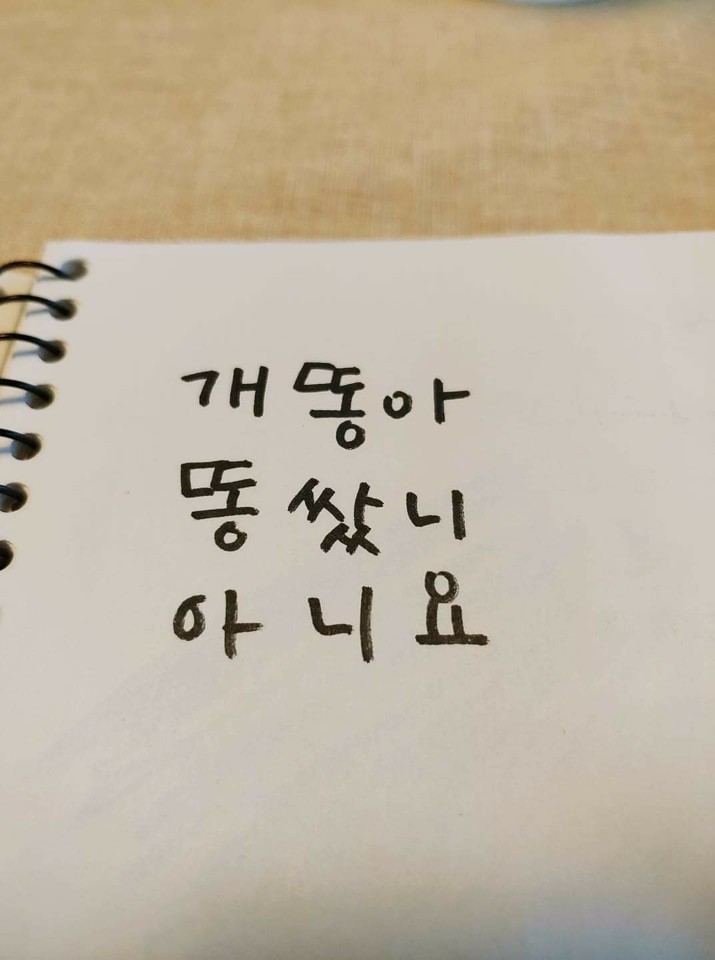 개똥아
똥 쌌니
아니요